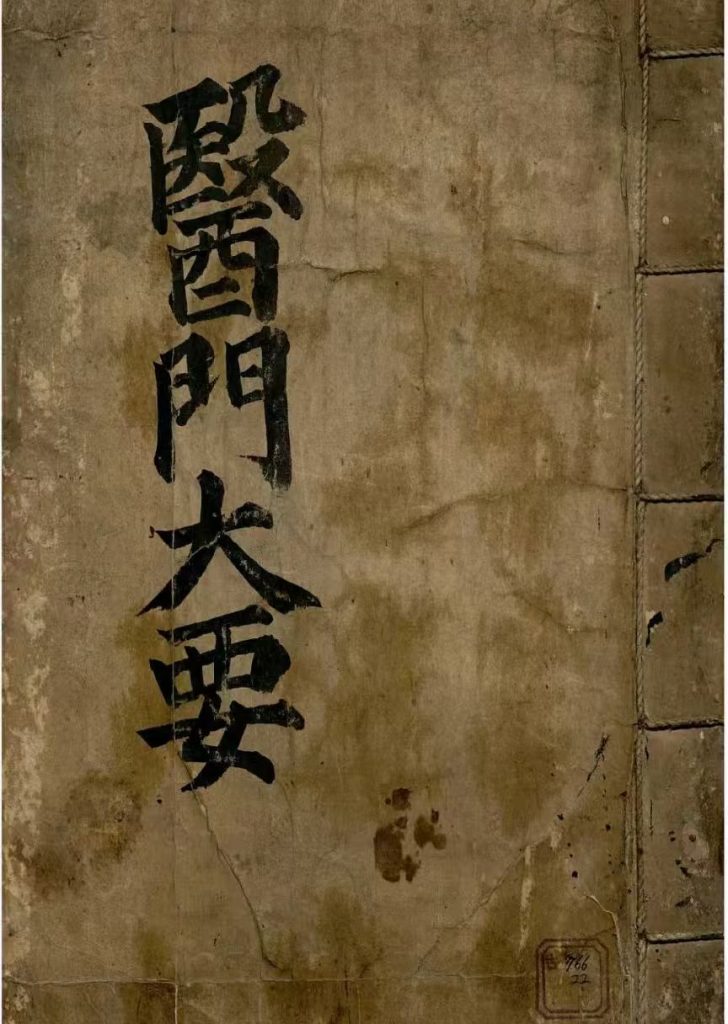 醫門大要
766
22